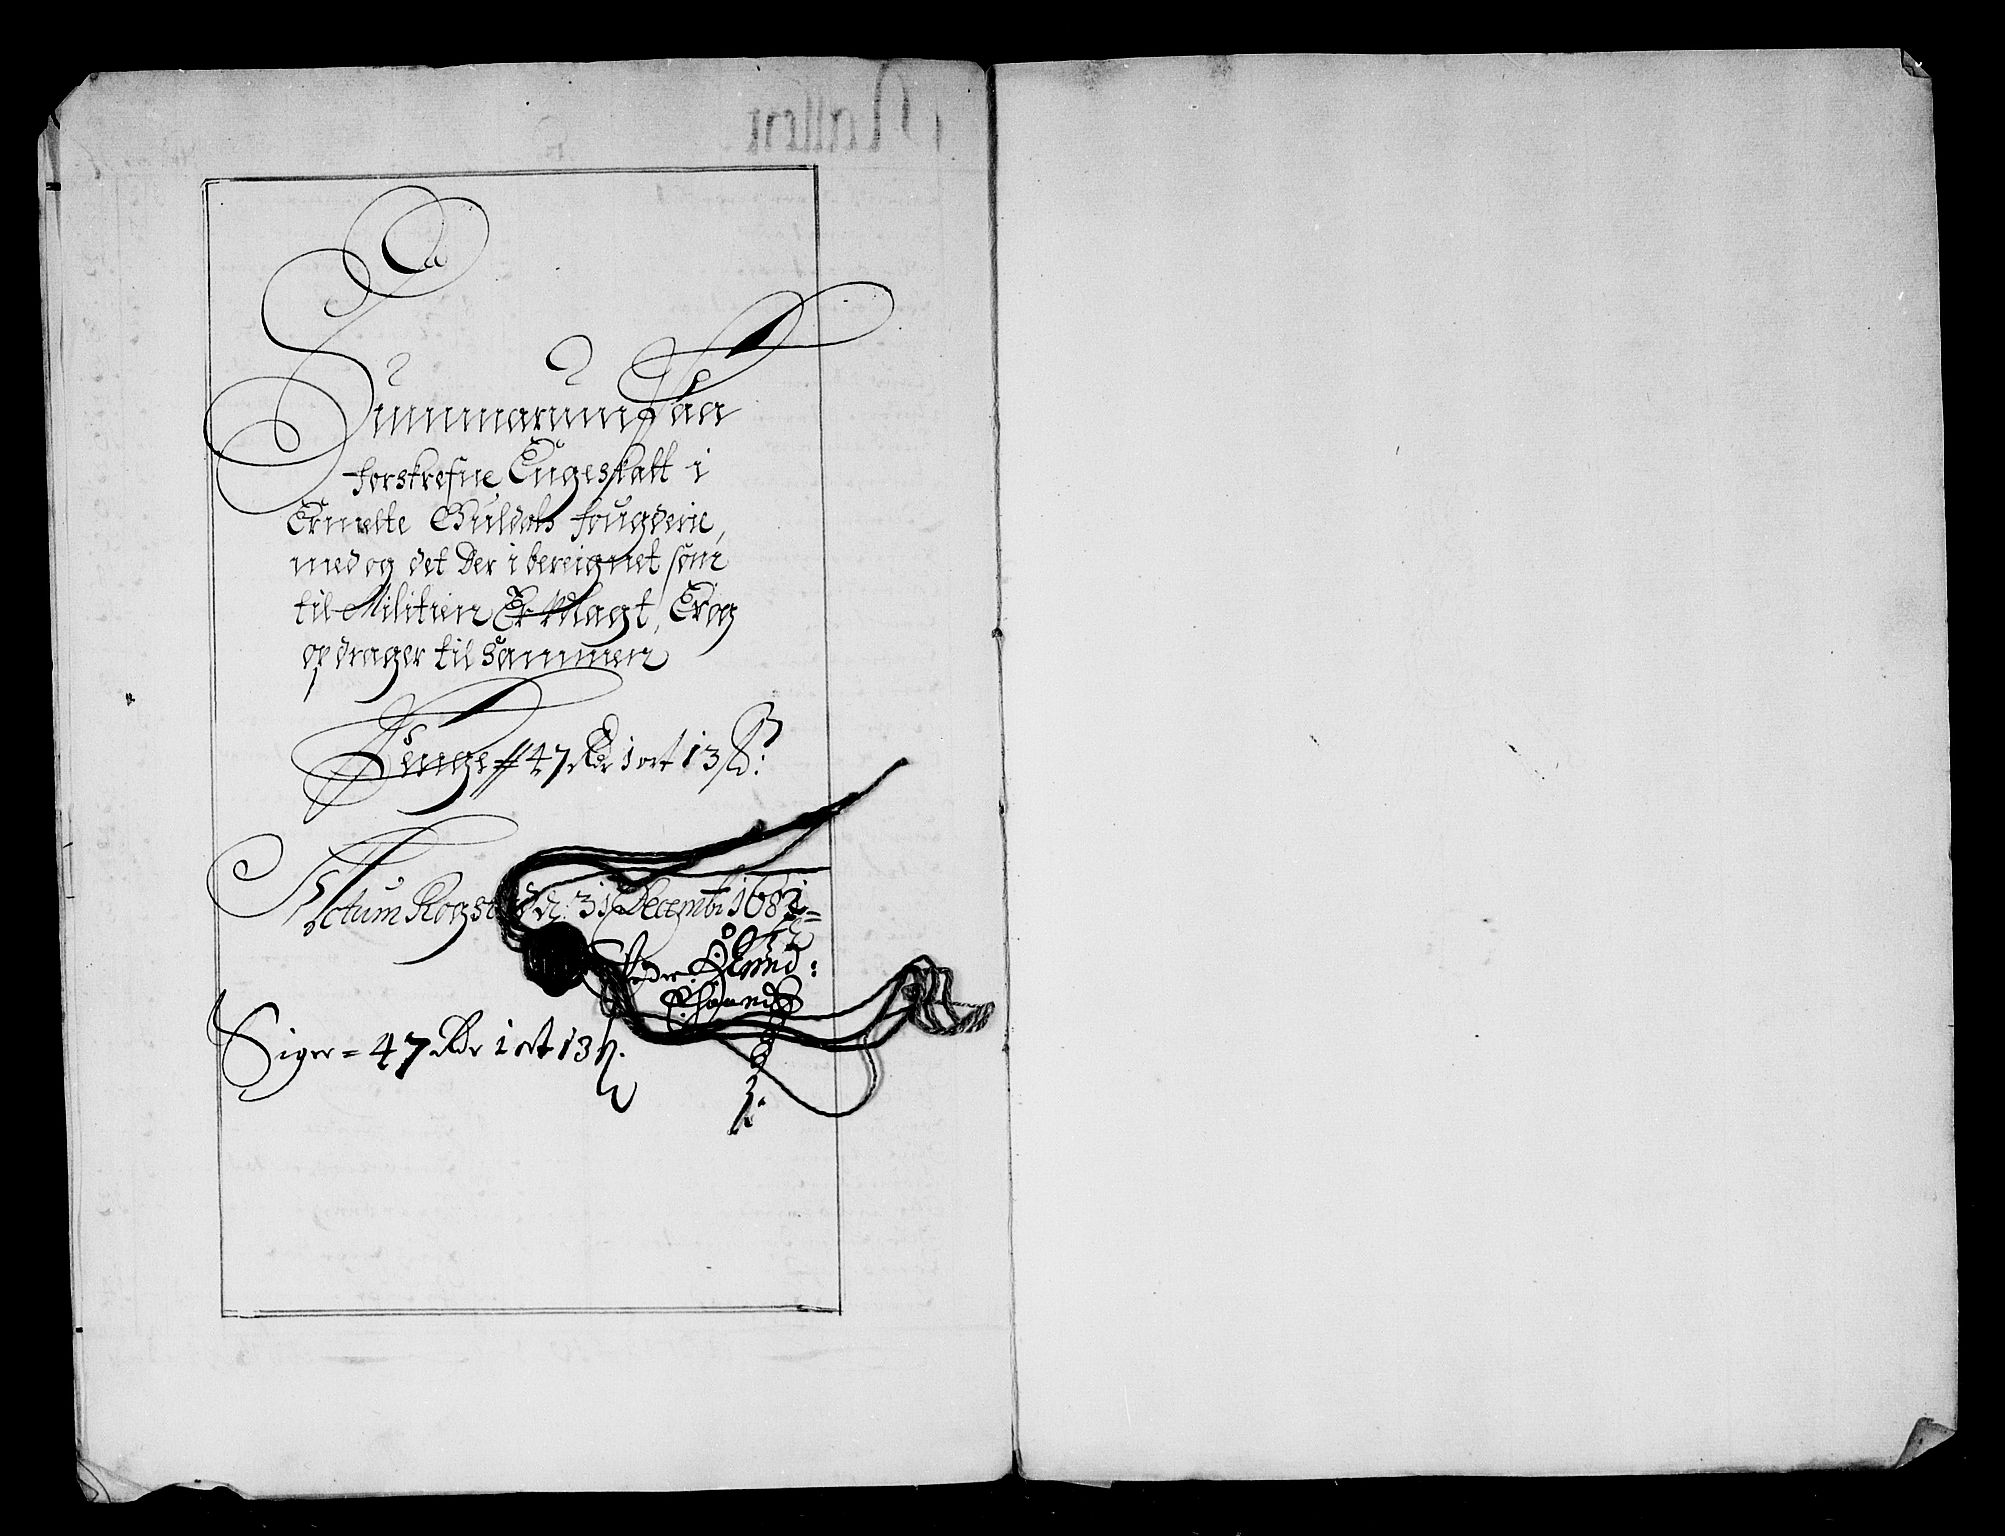 Summarum Paa
forskrefne Tugeskatt i
Ermelte Guldals fougderie,
med og det der i bereignet som
til Militien Er Udlagt, Er og
opdrager til sammen
Penge 47 Rdr 1 ort 13 ß:
Actum Rogstad d: 31 Decemb: 1681
Siger = 47 Rdr 1 ort 13 ß.